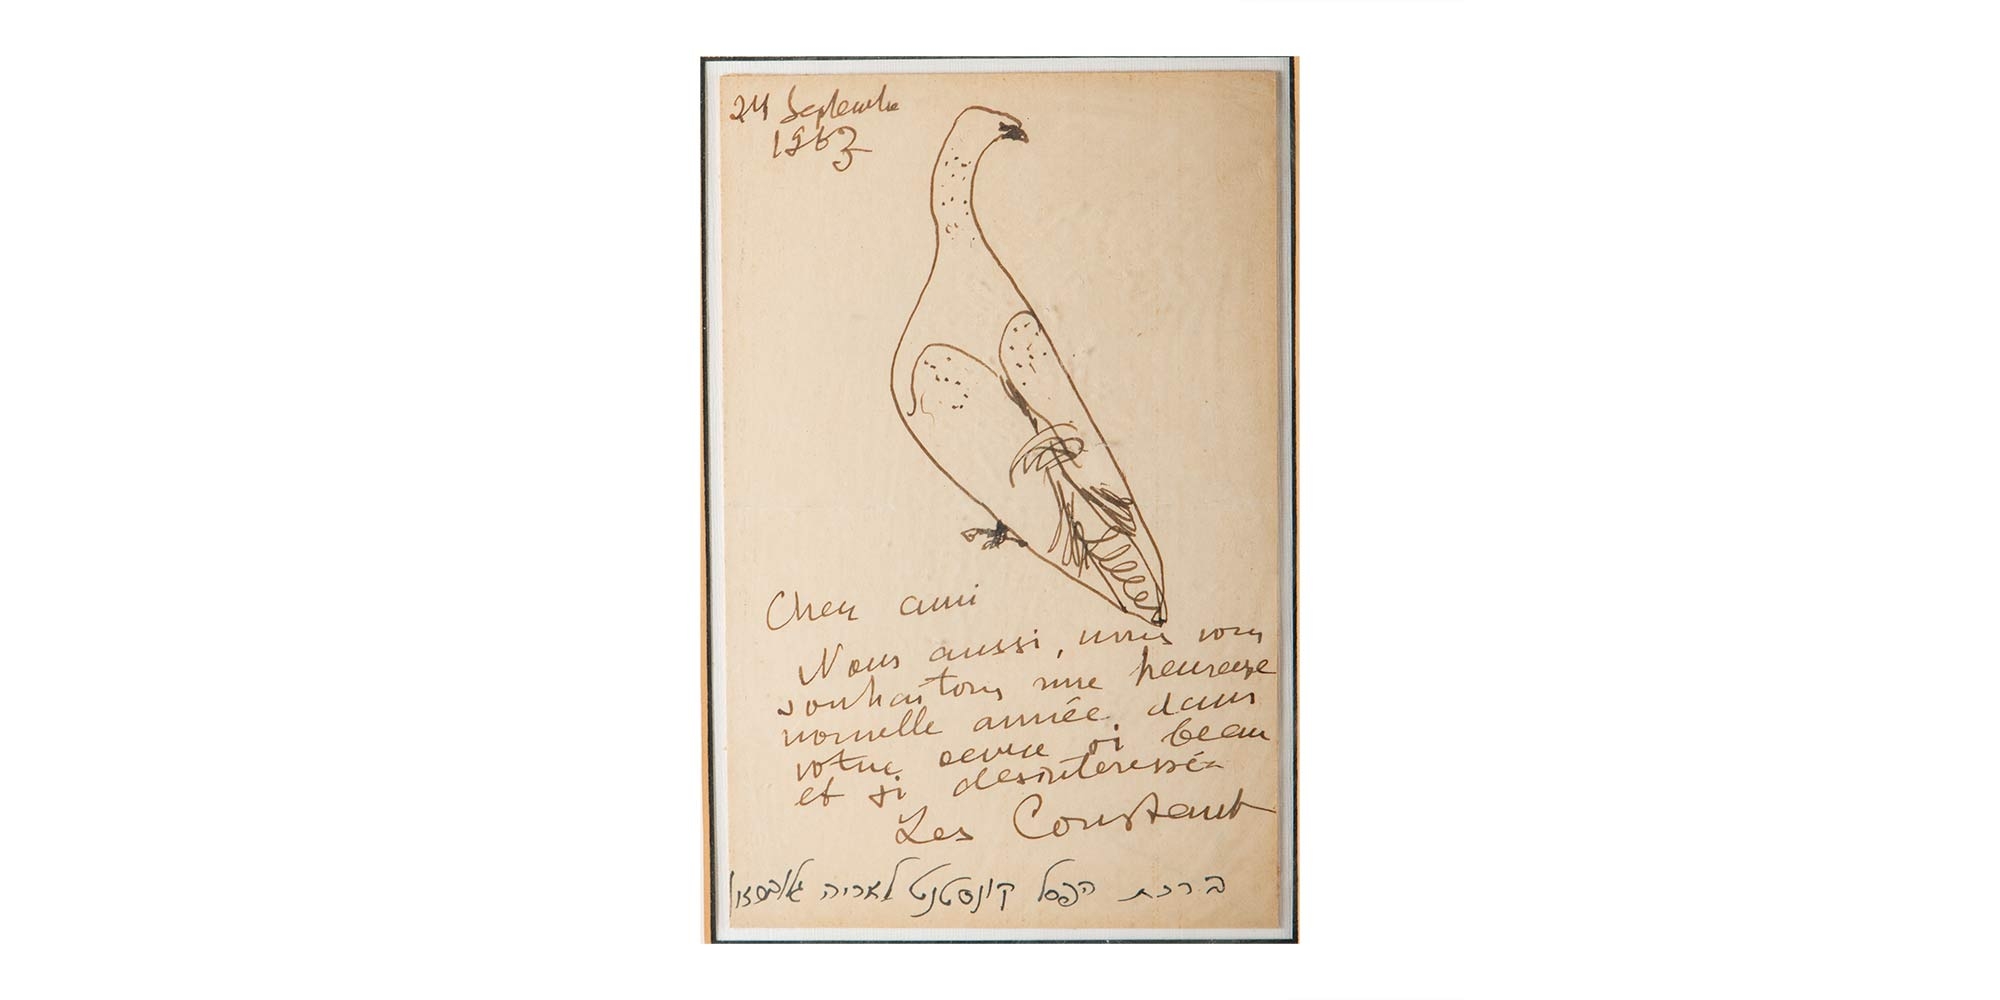 24 Septembre
1963
Cher ami
Nous aussi, nous vous
souhaitons une heureuse
nouvelle année, dans
votre oeuvre si beau
et si desinteressée
Les Constant
ברכת הפסל קונסטנט לאריה